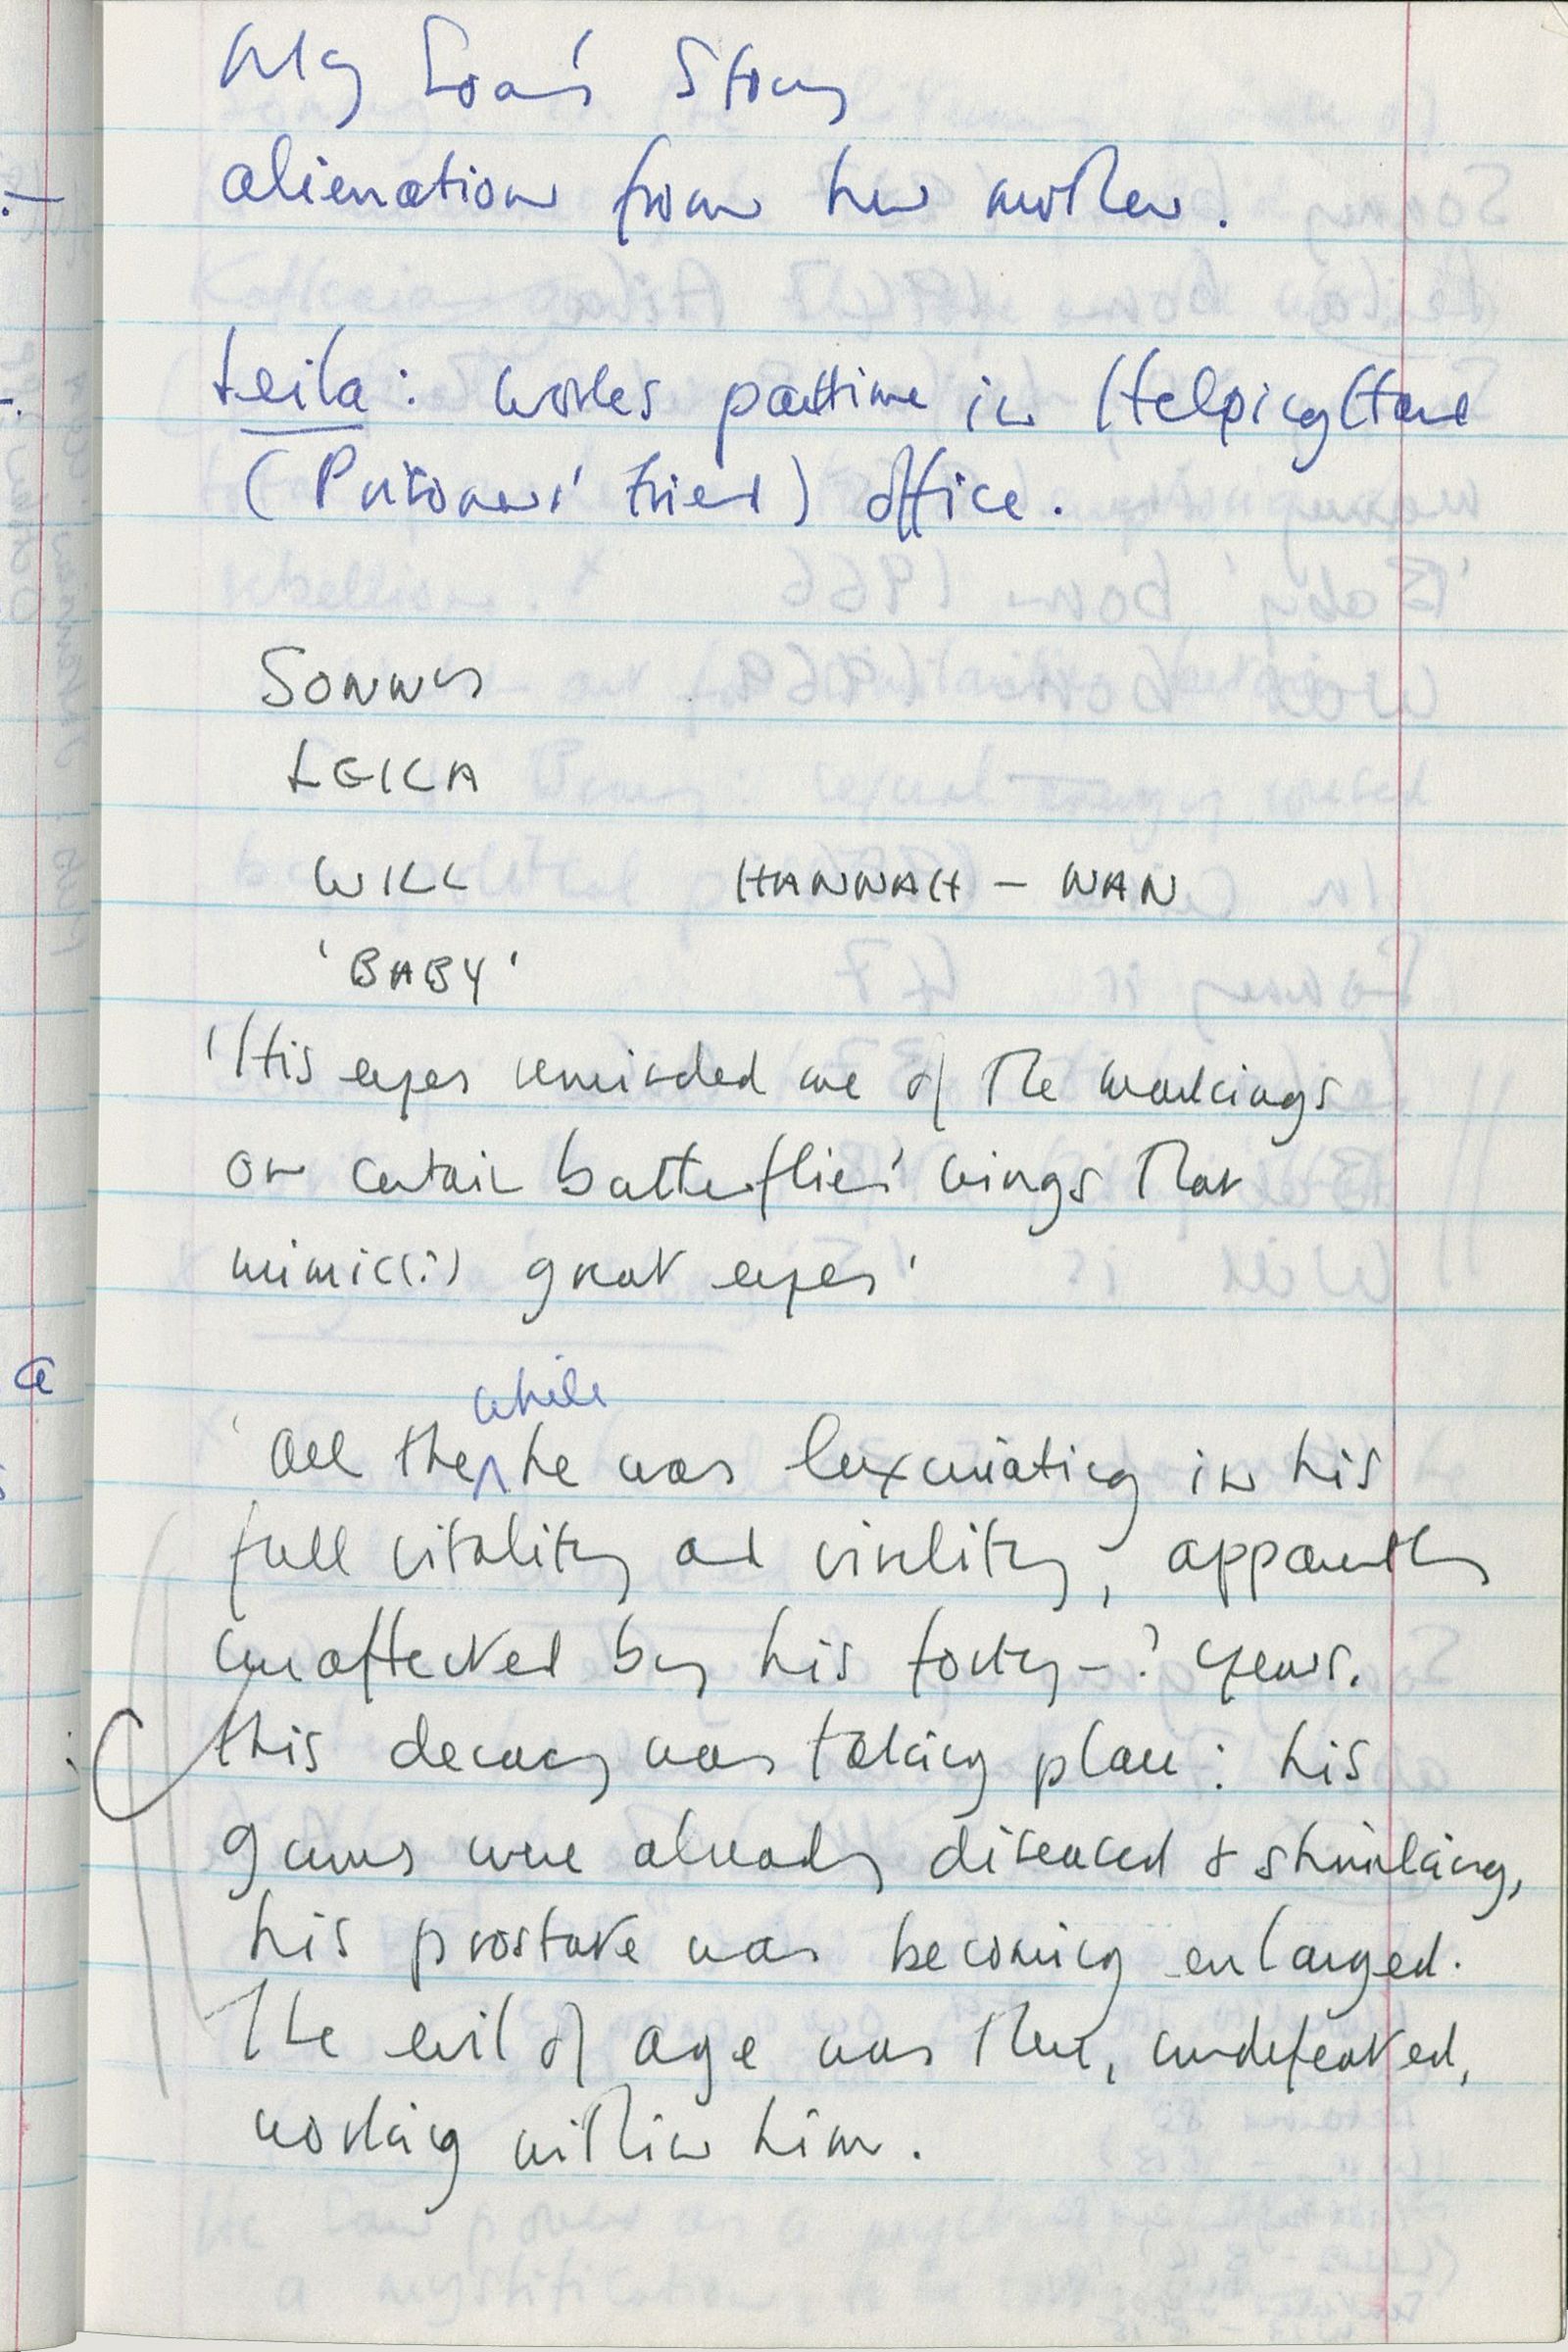 My Son's Story
alienation from her mother.
Leila: works parttime in Helping Hand
(Prisoners' Friend) office.
SONNY
LEILA
WILL HANNAH – NAN
'BABY'
'His eyes reminded me of the markings
on certain butterflies' wings that
mimic(:) great eyes'
while
'All the ^ he was luxuriating in his
full vitality and virility, apparently
unaffected by his forty-? years.
this decay was taking place: his
gums were already diseased & shrinking,
his prostate was becoming enlarged.
The evil of age was there, undefeated,
working within him.